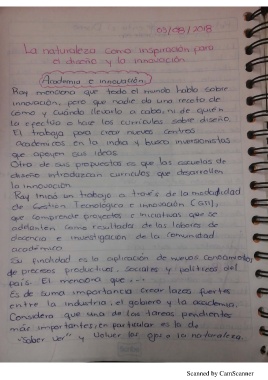 03/08/2018
La naturaleza como inspiración para
el diseño y la innovación
Academia e innovación
Ray menciona que todo el mundo habla sobre
innovación, pero que nadie da una receta de
como y cuándo llevarlo a cabo, ni de quien
la ejecuta o hace los curriculos sobre diseño.
El trabaja para crear nuevos centros
Academicos en la india y busca inversionistas
que apoyen sus ideas.
Otra de sus propuestas es que las escuelas de
diseño introduzcan curriculos que desarrollen
la innovación.
Ray inicio un trabajo a través de la modalidad
de Gestion Tecnológica e innovación (GTI),
que comprende proyectos e iniciativas que se
adelantan como resultado de las labores de
docencia e investigación de la comunidad
académica.
Su finalidad es la aplicación de nuevos conocimientos
de procesos productivos, sociales y politicos del
país. El menciona que
Es de suma importancia crear lazos fuertes
entre la industria, el gobierno y la academia.
Considera que una de las tareas pendientes
más importantes, en particular es la de
"Saber ver" y volver los ojos a la naturaleza.
Scanned by CamScanner